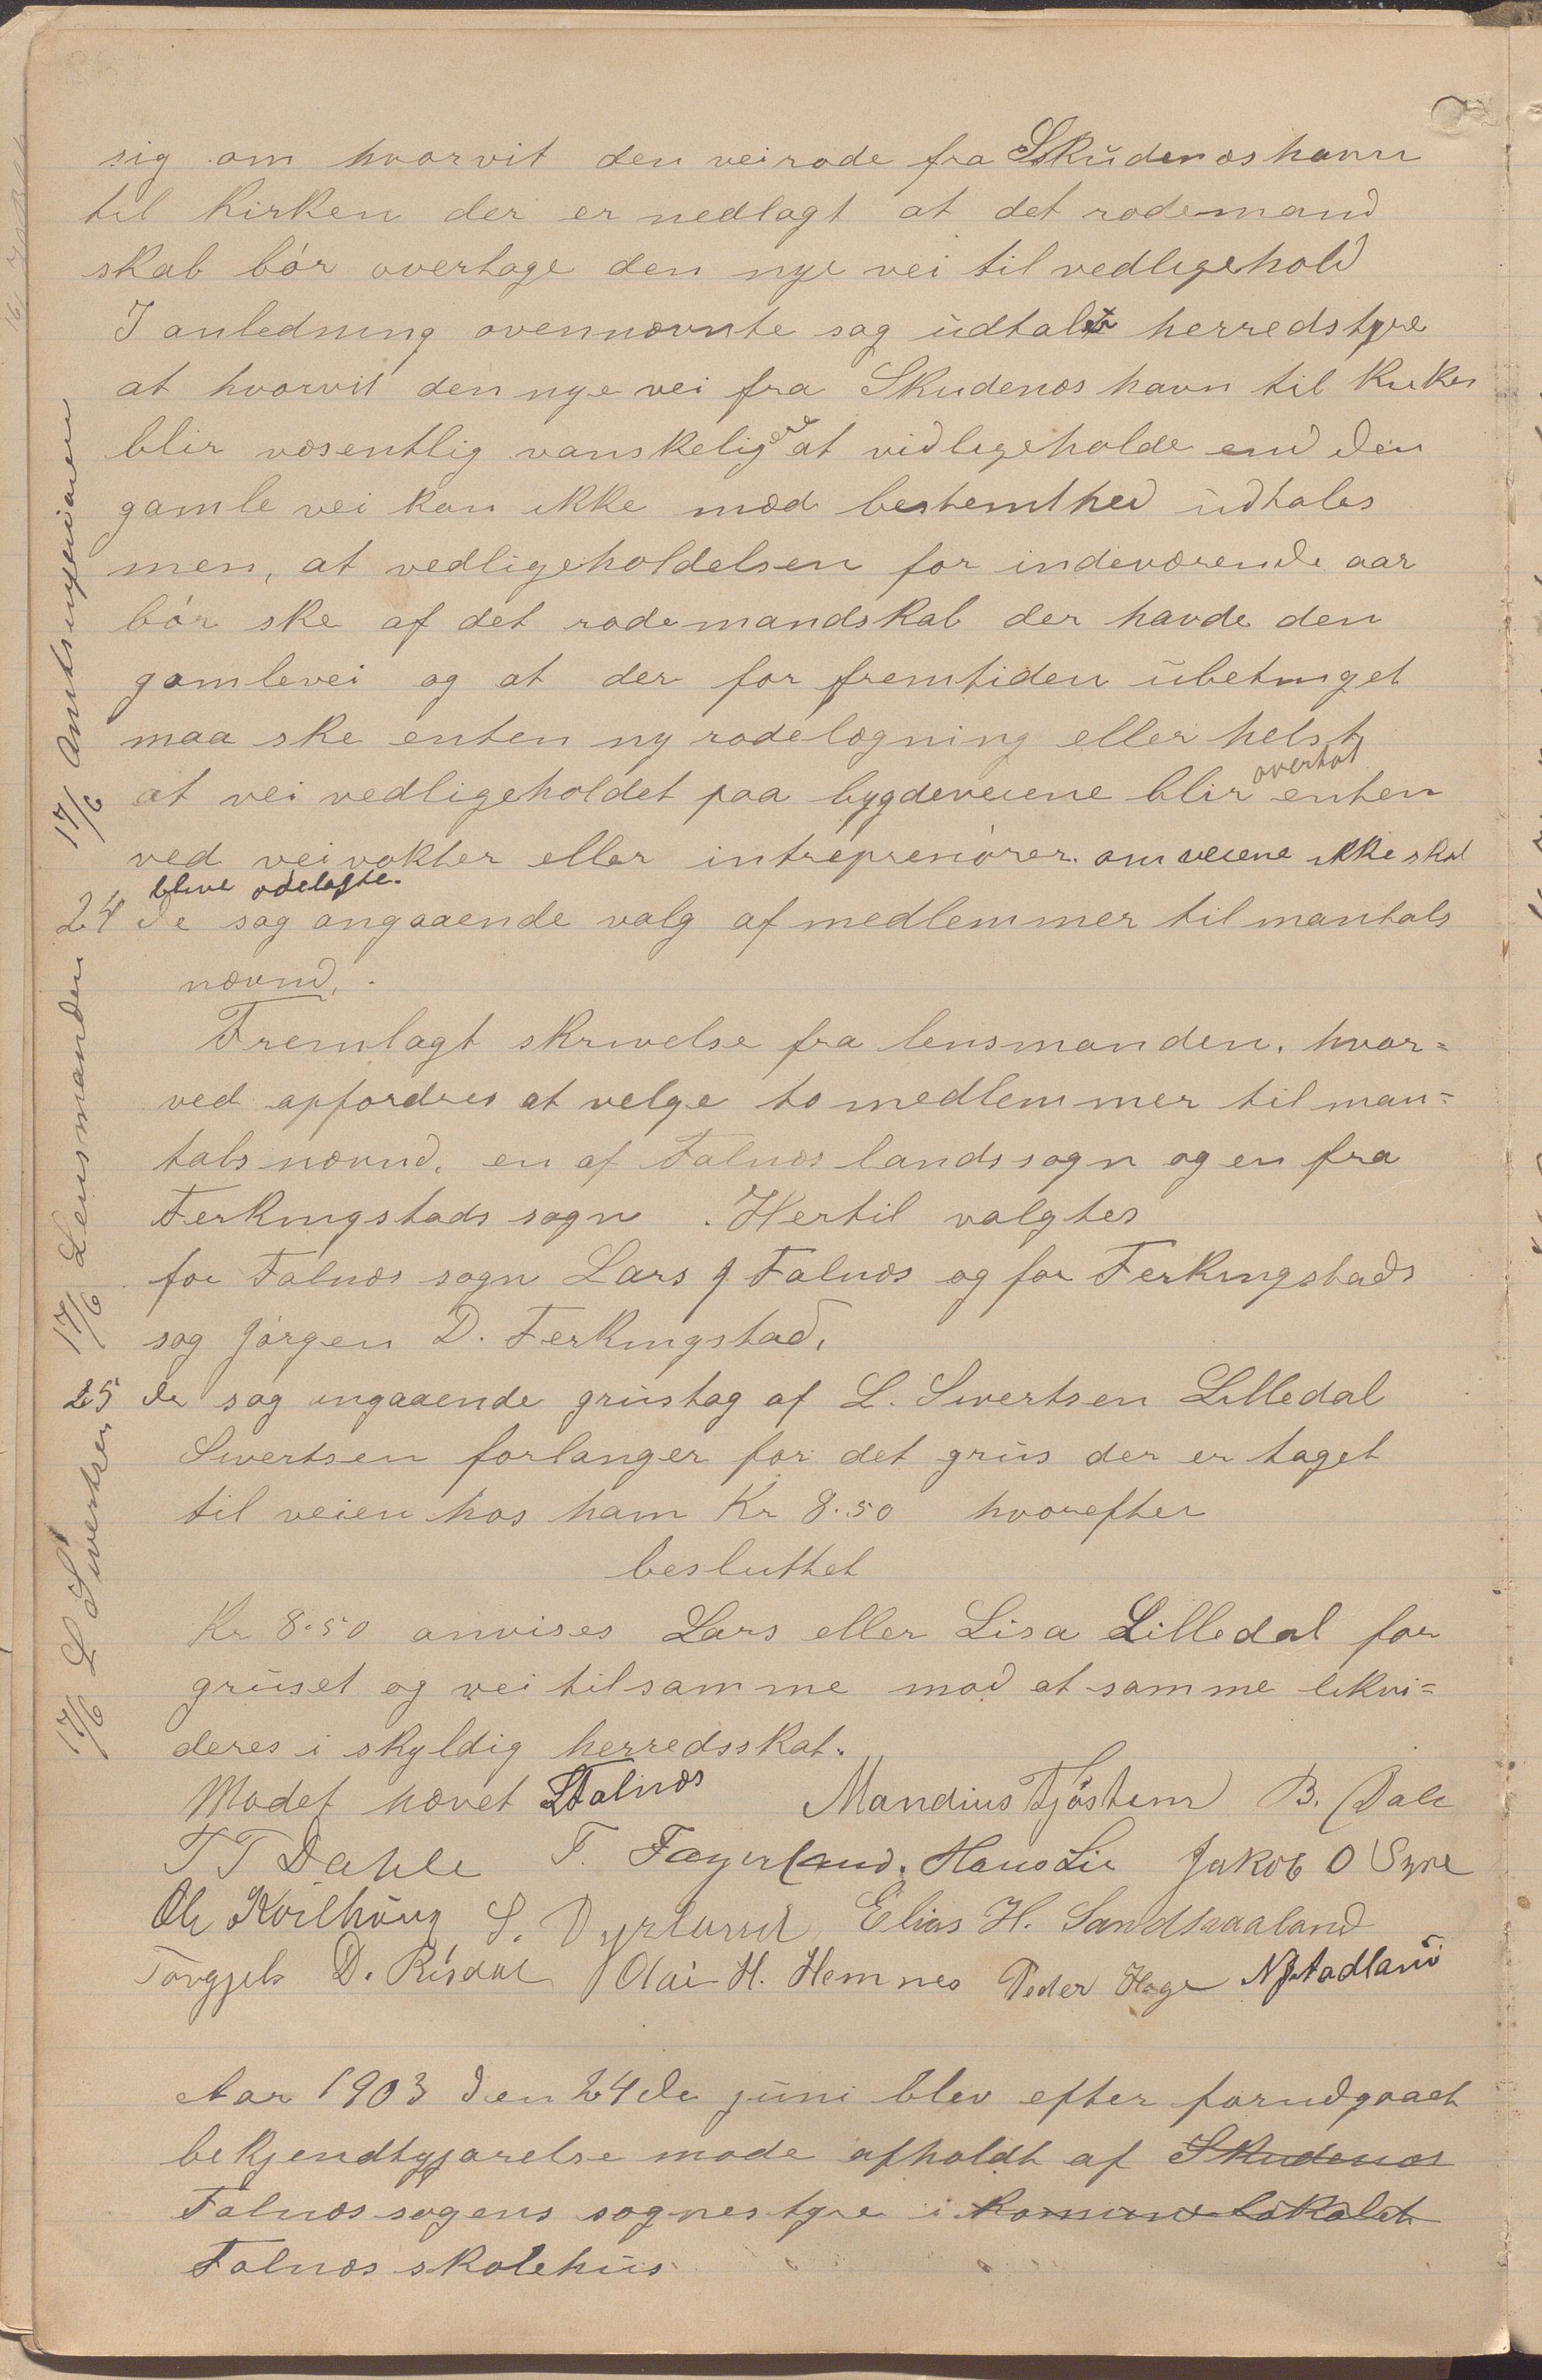 sig om hvorvit den veirode fra Skudenæshavn
til Kirken der er nedlagt at det rodemand
skab bór overtage den nye vei til vedligehold
I anledning ovennævnte sag udtalte herredstyre
at hvorvit den nye vei fra Skudenæshavn til Kirken
blir væsentlig vanskeligere at vidligeholde end den
gamle vei kan ikke mæd bestemthed udtales
men, at vedligeholdelsen for indeværende aar
bór ske af det rodemandskab der havde den
gamlevei og at der for fremtiden ubetinget
maa ske enten ny rodelægning eller helst
at vei vedligeholdet paa bygdeveiene blir overtat enten
ved veivokter eller intreprenórer. om veiene ikke skal
blive ódelagte.
17/6 Amtsingeniøren
24 de sag angaaende valg af medlemmer til mantals
nævnd.
Fremlagt skrivelse fra lensmanden, hvor=
ved opfordres at velge to medlemmer til man=
tals nævnd, en af Falnæs landssogn og en fra
Ferkingstads sogn. Hertil valgtes
for Falnæs sogn Lars J Falnæs og for Ferkingstads
sog Jórgen D. Ferkingstad.
17/6 Lensmanden
25 de sag angaaende grustag af L. Sivertsen Lilledal
Sivertsen forlanger for det grus der er taget
til veien hos ham Kr 8.50 hvorefter
besluttet
Kr 8.50 anvises Lars eller Lisa Lilledal for
gruset og vei til samme mod at samme likvi=
deres i skyldig herredsskat.
17/6 L Sivertsen
Mødet hævet LFalnæs Mandius Tjøstem B. Dale
T T Dahle T. Fagerland. Hans Lie Jakob O Syre
Ole Kvilhaug S. Dyrlund Elias H. Sandhaaland
D. Risdal Olai H. Hemnes Peder Hage N J Stadland
Aar 1903 den 24de juni blev efter forudgaaet
bekjendtgjørelse møde afholdt af Skudenæs
Falnæs sogens sognestyre i Komunelokalet
Falnæs skolehus